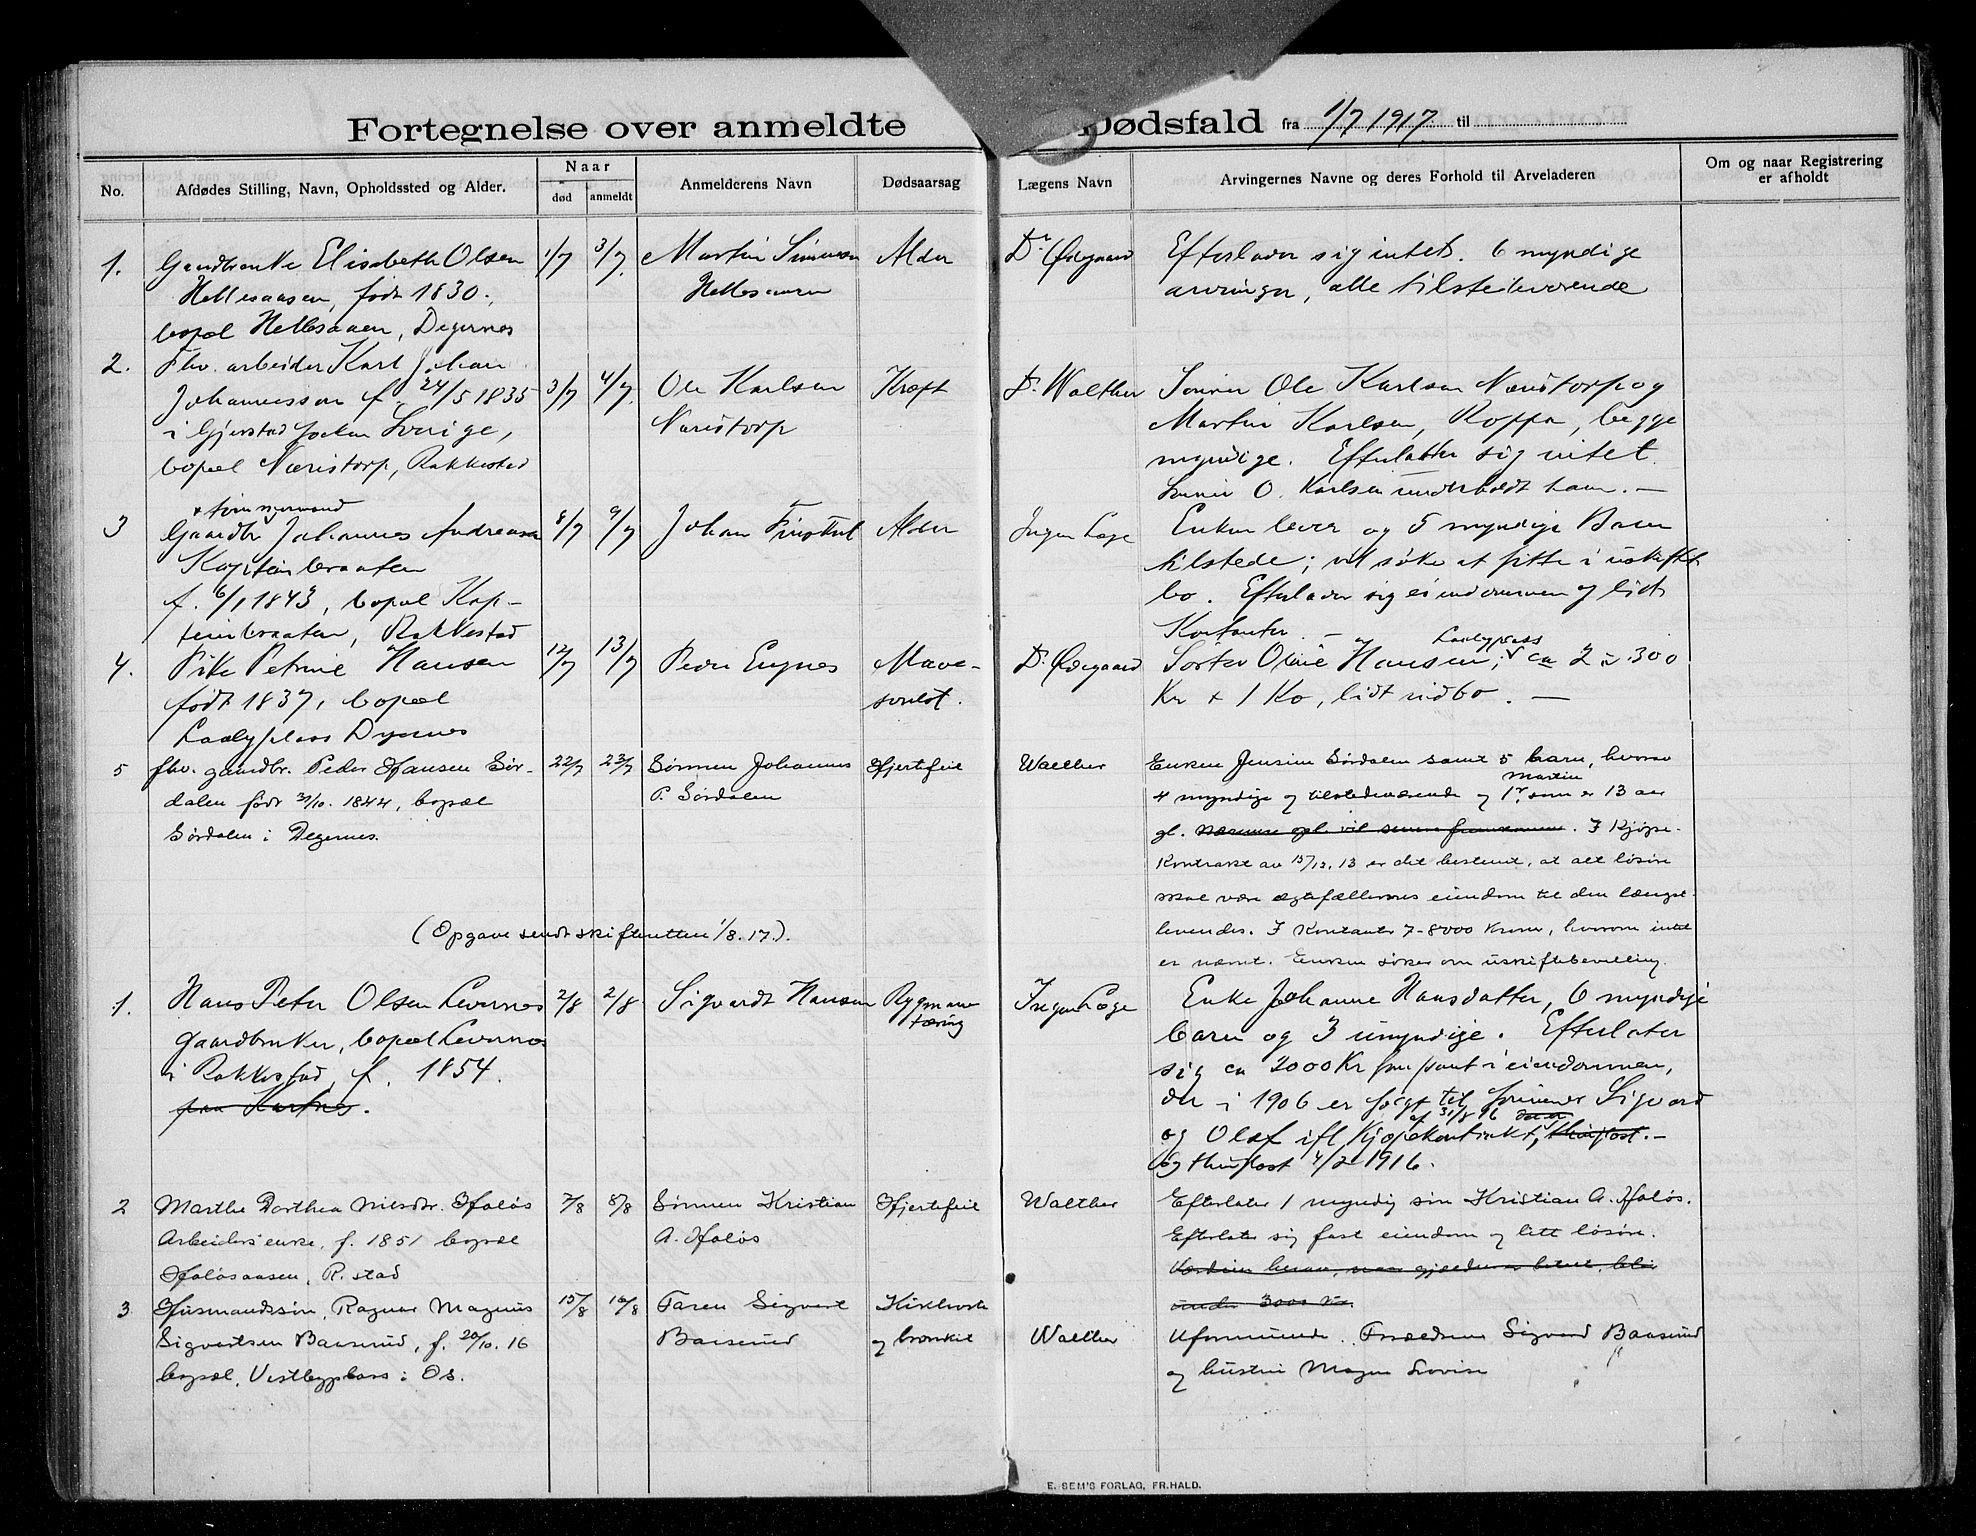 Fortegnelse over anmeldte Dødsfald fra 1/7 1917. til
No.
Afdødes Stilling, Navn, Opholdssted og Alder.
Naar
død
anmeldt
Anmelderens Navn
Dødsaarsag
Lægens Navn
Arvingernes Navne og deres Forhold til Arveladeren
Om og naar Registrering
er afholdt
1.
Gaardbr enke Elisabeth Olsen
Hellesaasen, født 1830.,
bopæl Hellesaaen, Degernes
1/7
3/7.
Martin Simensen
Hellesaaen
Alder
Dr Ødegaard
Efterlader sig intet. 6 myndige
arvinger, alle tilstedeværende
2.
Fhv. arbeider Karl Johan
Johannesson f. 24/5 1835
i Gjerstad Socken Sverige,
bopæl Næristorp, Rakkestad
3/7
4/7.
Ole Karlsen
Næristorp
Kræft
Dr. Walther
Sønner Ole Karlsen Næristorp og
Martin Karlsen, Koppa, begge
myndige. Efterlatter sig intet.
Sønnen O. Karlsen underholdt ham. —
3
Gaardbr Johannes Andreassen
Kapteinbraaten
f. 6/1 1843, bopæl Kap-
teinbraaten, Rakkestad
8/7
9/7
Johan
Alder
Ingen Læge
Enken lever og 5 myndige Barn
tilstede; vil søke at sitte i uskiftet
bo. Efterlader sig eiendommen og lidt
Kontanter. —
4.
Pike Petrine Hansen
født 1837, bopæl
Laabyplass Degernes
12/7
13/7
Peder Engnes
Mave-
svulst.
Dr. Ødegaard
Laabyplass
Søster Oline Hansen, ca 2 à 300
Kr + 1 Ko, lidt indbo. —
5
fhv. gaardbr. Peder Hansen Sør-
dalen født 31/10. 1844, bopæl
Sørdalen i Degernes.
22/7
23/7
Sønnen Johannes
P. Sørdalen
Hjertefeil
Walther
Enken Jensine Sørdalen samt 5 barn, hvorav
Martin
4 myndige og tilstedeværende og 1, som er 13 aar
gl. . I Kjøpe-
kontrakt av 15/12. 13 er det bestemt, at alt løsøre
skal være ægtefællernes eiendom til den længst-
levendes. I Kontanter 7-8000 kroner, hvorom intet
er nævnt. Enken søker om uskiftebevilling.
(Opgave sendt skifteretten 1/8. 17.).
1.
Hans Peter Olsen Levernes
Gaardbruker, bopæl Levernes
i Rakkestad, f. 1854.
2/8
2/8
Sigvardt Hansen
Rygmarv
tæring
Ingen Læge
Enke Johanne Hansdatter, 6 myndige
barn og 3 umyndige. Efterlater
sig ca 2000 Kr pant i eiendommen,
der i 1906 er solgt til sønnerne Sigvard
af 31/8 16
og Olaf ifl Kjøpekontrakt, —
og thinglæst 4/2 1916.
2
Marthe Dorthea Nilsdtr. Holøs
Arbeiders enke, f. 1851 bopæl
Holøsaasen, R.stad
7/8
8/8
Sønnen Kristian
A. Holøs
Hjertefeil
Walther
Efterlater 1 myndig søn Kristian A. Holøs.
Efterlater sig fast eiendom og litt løsøre.
under 3000 kr.
3
Husmandssøn, Ragnar Magnus
Sigvartsen Baaserud, f. 20/10. 16
bopæl, Vestbyplass i Os.
15/8
16/8
Faren Sigvart
Baaserud
Kikhoste
og bronkit
Walther
Uformuende. Forældrene Sigvard Baaserud
og hustru Magna Lovise
E. SEM'S FORLAG, FR.HALD.